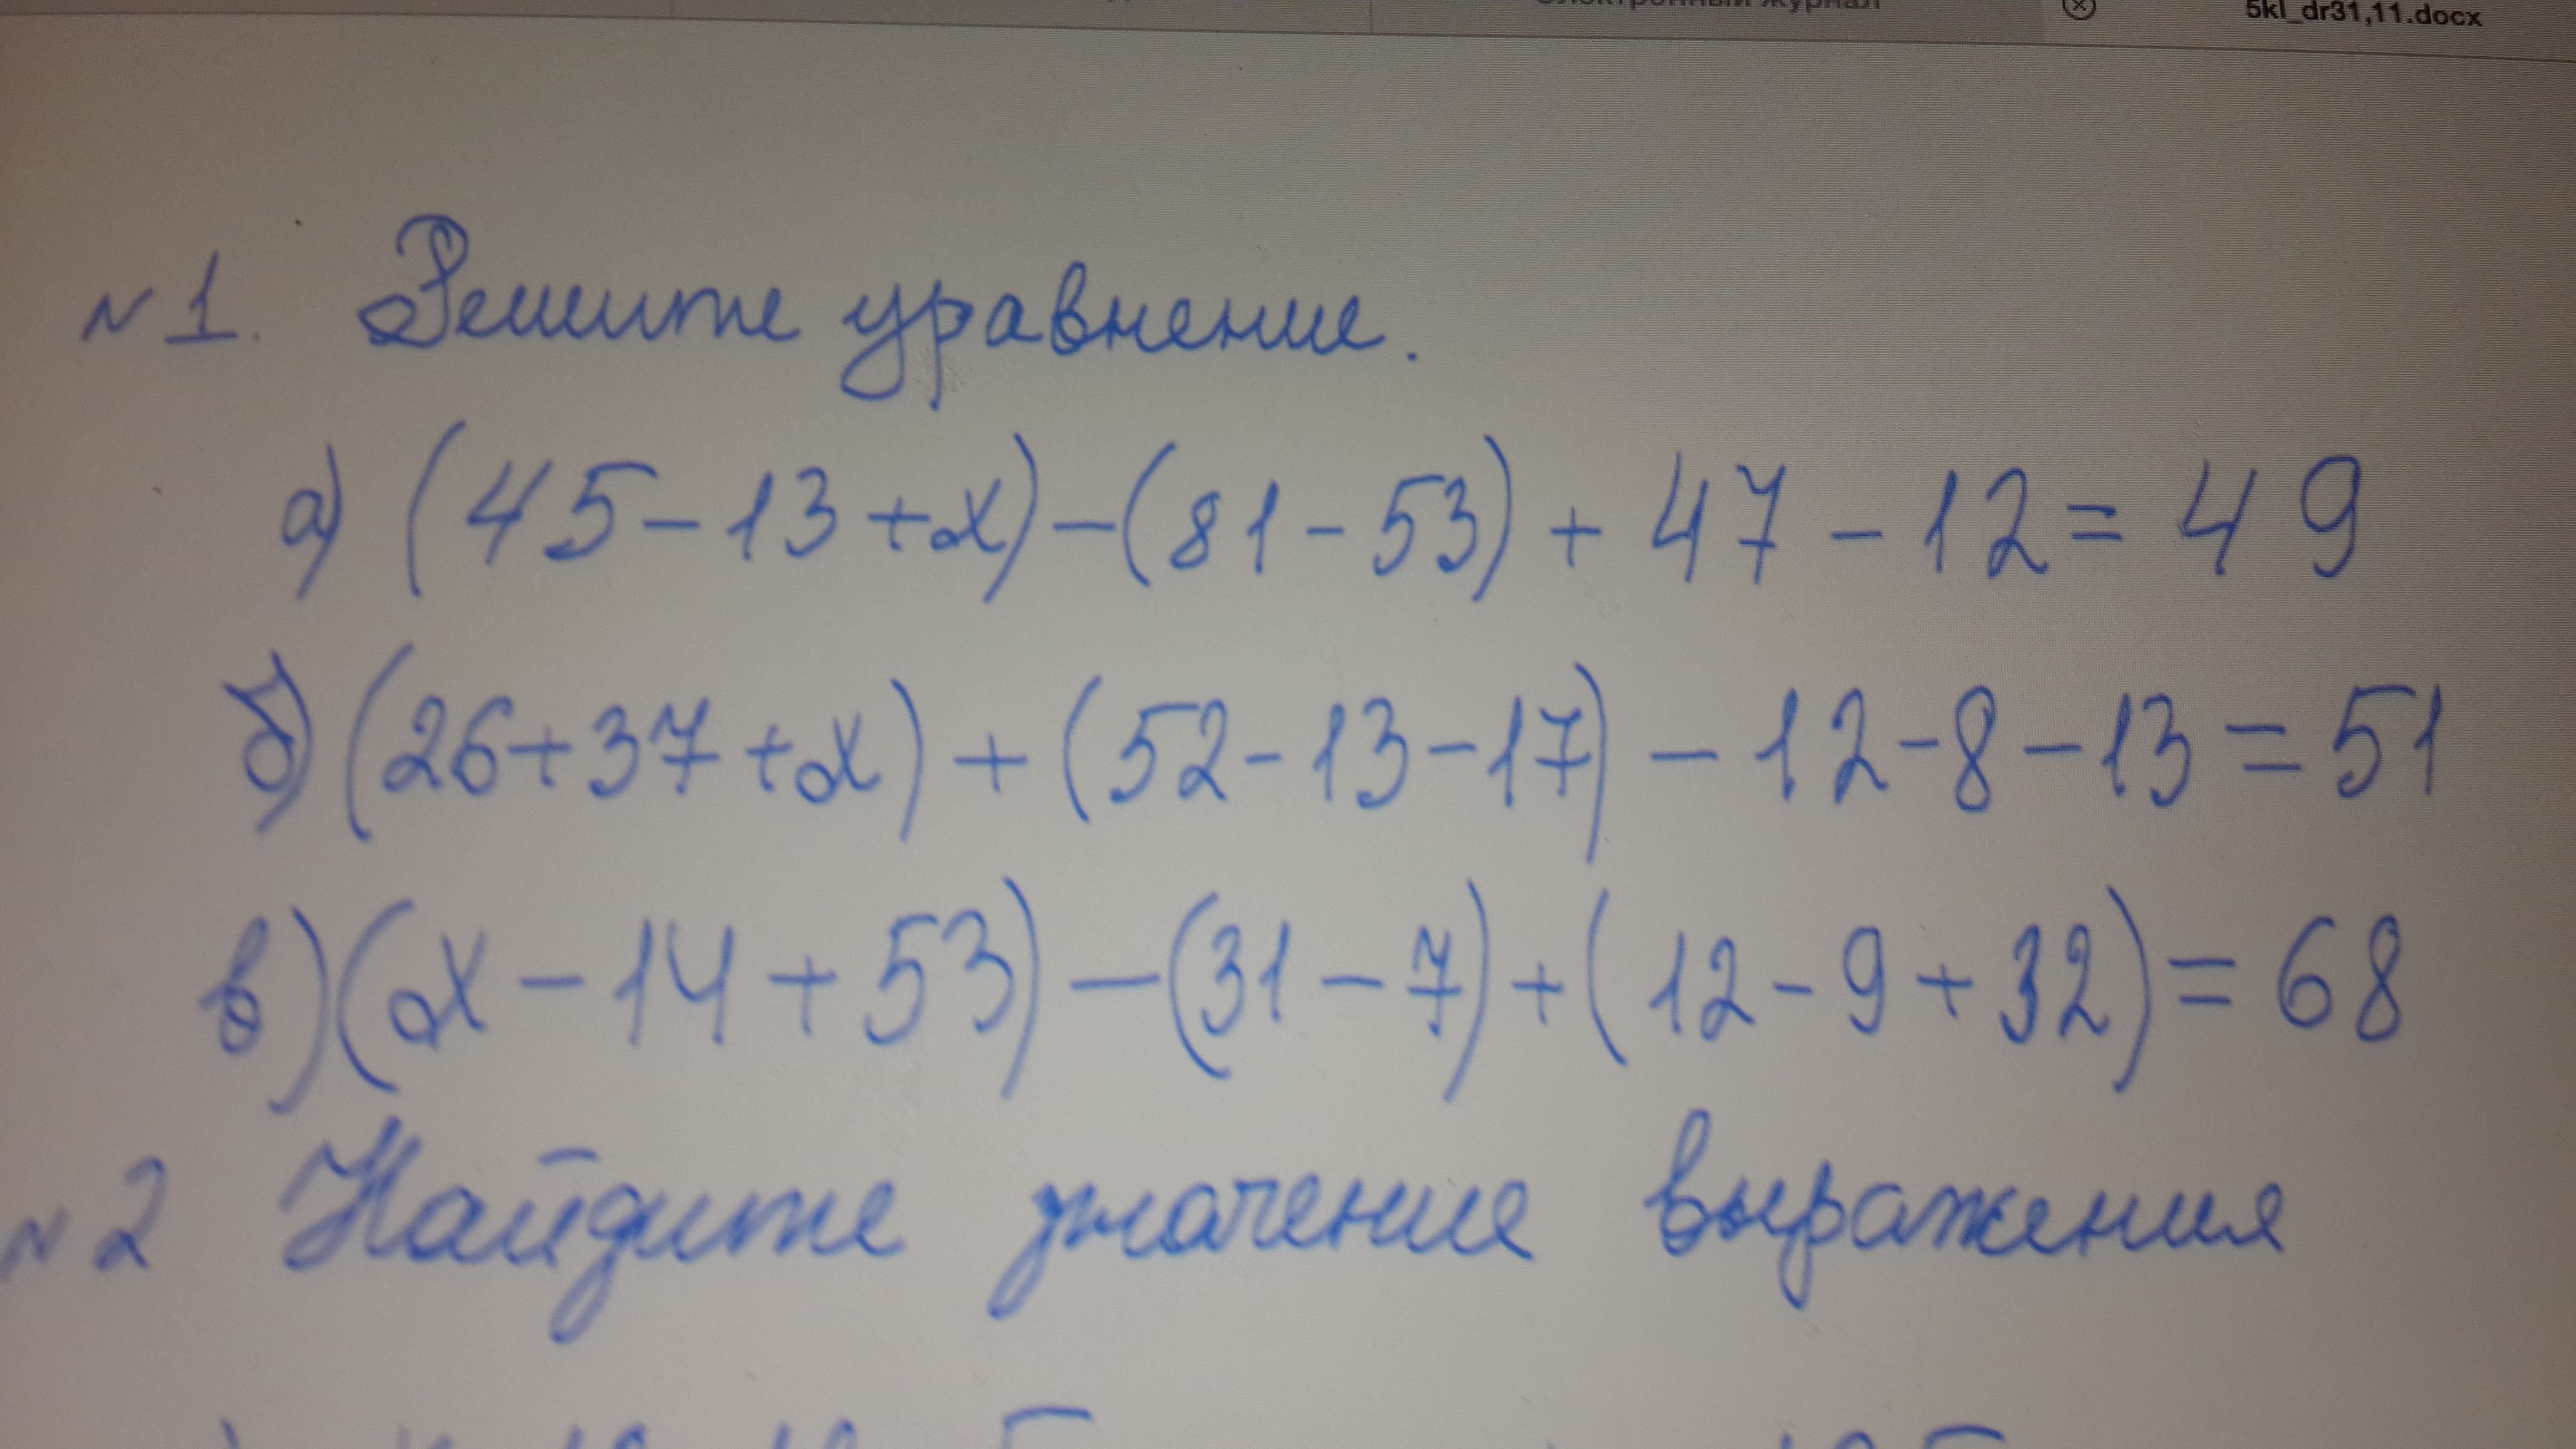 5kl_dr31,11.docx
№1. Решите уравнение.
а) (45-13+x)-(81-53)+47-12=49
б) (26+37+x)+(52-13-17)-12-8-13=51
в) (x-14+53)-(31-7)+(12-9+32)=68
№2 Найдите значение выражения